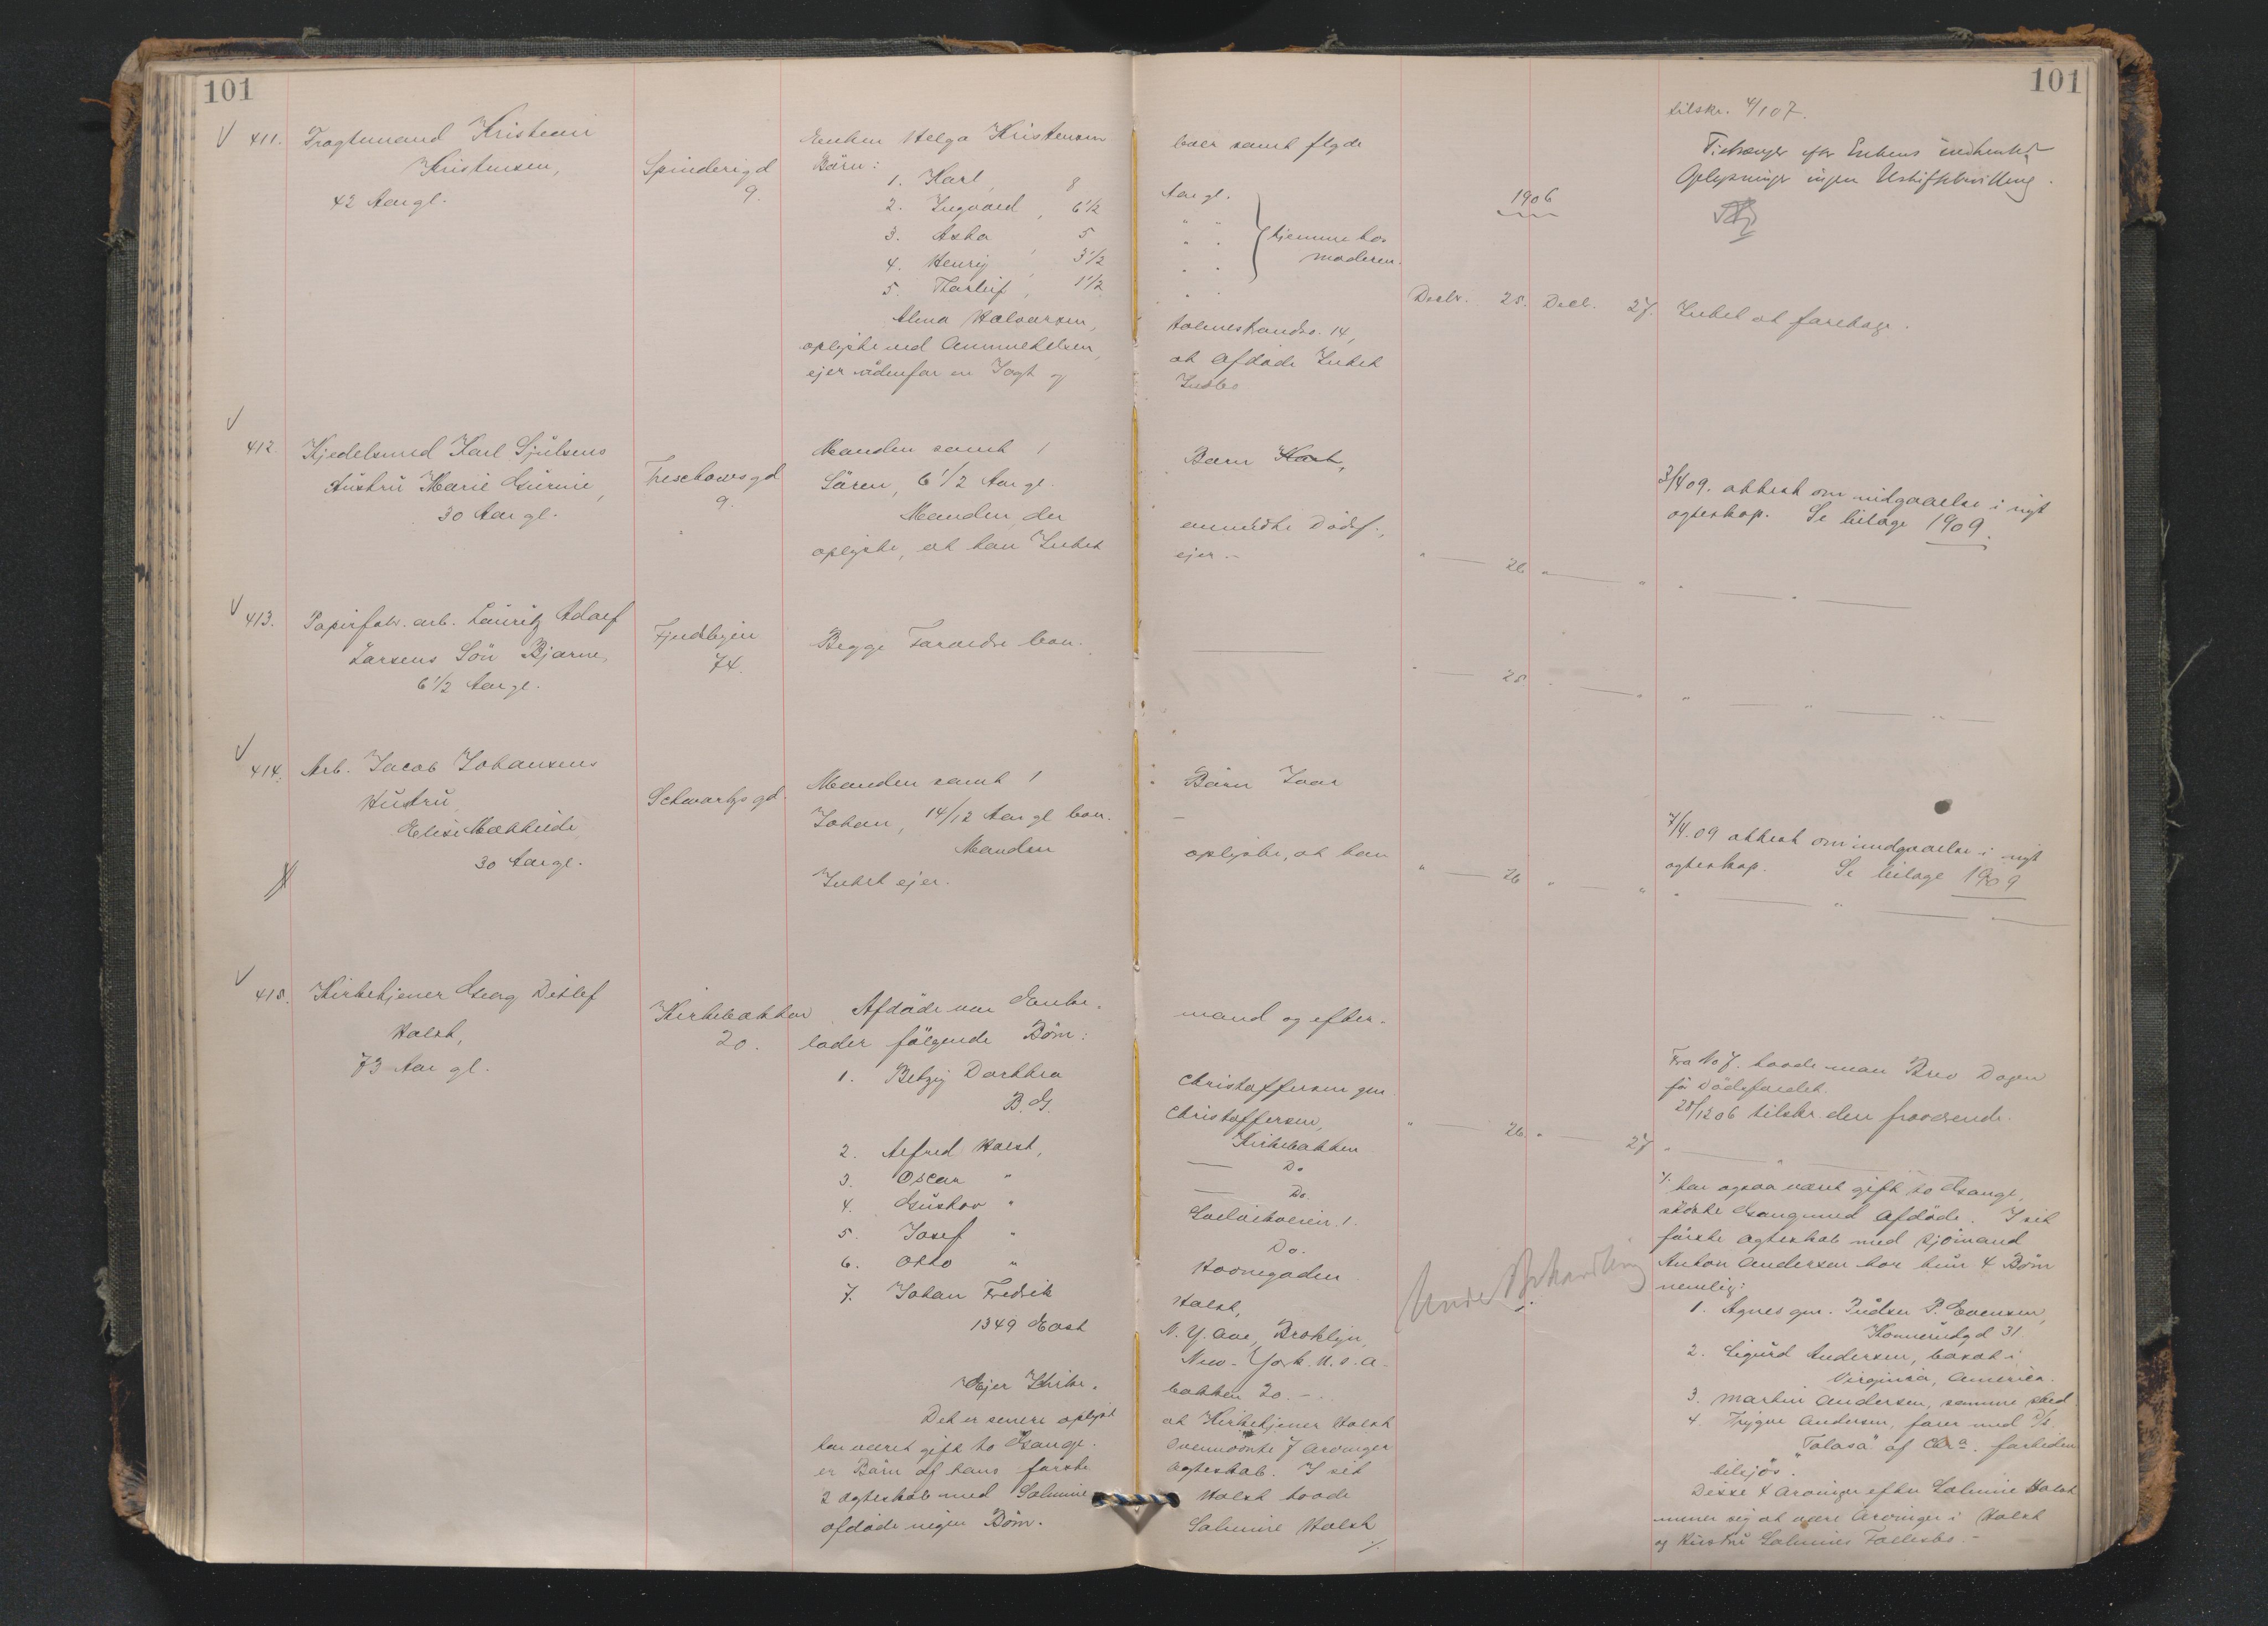 101
101
V 411. Fragtmand Kristian
Kristensen,
42 Aar gl.
Spinderigd
9.
Enken Helga Kristensen
boer samt flgde
Börn:
1. Karl, 8 Aar gl.
2. Ingvard, 6 1/2 " "
3. Asta 5 " "
4. Henry, 3 1/2 " "
5. Thorleif, 1 1/2 " "
hjemme hos
moderen.
Alma Halvorsen,
Holmestrandsv. 14,
oplyste ved Anmeldelsen,
at Afdöde Intet
ejer udenfor en Jagt og
Indbo
1906
Decbr. 25. Decb. 27. Intet at foretage.
tilskr. 4/1 07.
efter Enkens indhentede
Oplysninger ingen Uskiftebevilling.
V 412. Kjedelsmed Karl Sjulsens
Hustru Marie Gurine,
30 Aar gl.
Treschowsgd
9.
Manden samt 1
Barn Karl,
Sören, 6 1/2 Aar gl.
Manden, der
anmeldte Dödsf.,
oplyste, at han Intet
ejer.-
" — 26 " — " " — " —
3/4 09. attest om indgaaelse i nyt
egteskap. Se bilage 1909.
V 413. Papirfabr. arb. Lauritz Adolf
Larsens Sön Bjarne,
6 1/2 Aar gl.
Tjendbyen
74.
Begge Forældre bor.
" — 25 " — " " — " — " —
V 414. Arb. Jacob Johansens
Hustru
Elise Mathilde
30 Aar gl.
Schwartzgd.
Manden samt 1
Barn Ivar
Johan, 14/12 Aar gl bor.
Manden
oplyste, at han
Intet ejer.
" — 26 " — " " — " — " —
7/4. 09 attest om indgaaelse i nyt
egteskap. Se bilage 1909
V 415. Kirketjener Georg Detlef
Holst,
73 Aar gl.
Kirkebakken
20.
Afdöde var Enke-
mand og efter-
lader fölgende Börn:
1. Betzy Dorthea
Christoffersen gm
B. G.
Christoffersen,
Kirkebakken
2. Alfred Holst, — Do
3. Oscar " — Do.
4. Gustav "
5. Josef " Do.
6. Otto " Havnegaden
7. Johan Fredrik
Holst,
1349 East
N. Y. Ave, Broklyn,
New-York. U. S. A.
Ejer Kirke-
bakken 20. -
Det er senere oplyst
at Kirketjener Holst
har været gift to Gange.
Ovennævnte 7 Arvinger
er Börn af hans förste
Ægteskab. I sit
2 Ægteskab med Salmine
Holst havde
afdöde ingen Börn.
Salmine Holst
./.
" — 26 " — 27 " — " —
Under Behandling
Fra No 7. havde man Brev Dagen
för Dödsfaldet.
28/12 06 tilskr. den fraværende.
./. har ogsaa været gift to Gange,
sidste Gang med Afdöde. I sit
förste Ægteskab med Sjömand
Anton Andersen har hun 4 Börn
nemlig:
1. Agnes gm. P. Evensen,
Konnerudgd 31.
2. Sigurd Andersen, bosat i
Virginia, America.
3. Martin Andersen, samme sted.
4. Trygve Andersen, farer med D/S,
"Tolosa" af Chra. fortiden
tilsjös.
Disse 4 Arvinger efter Salmine Holst
mener sig at være Arvinger i Holst
og Hustru Salmines Fællesbo. -